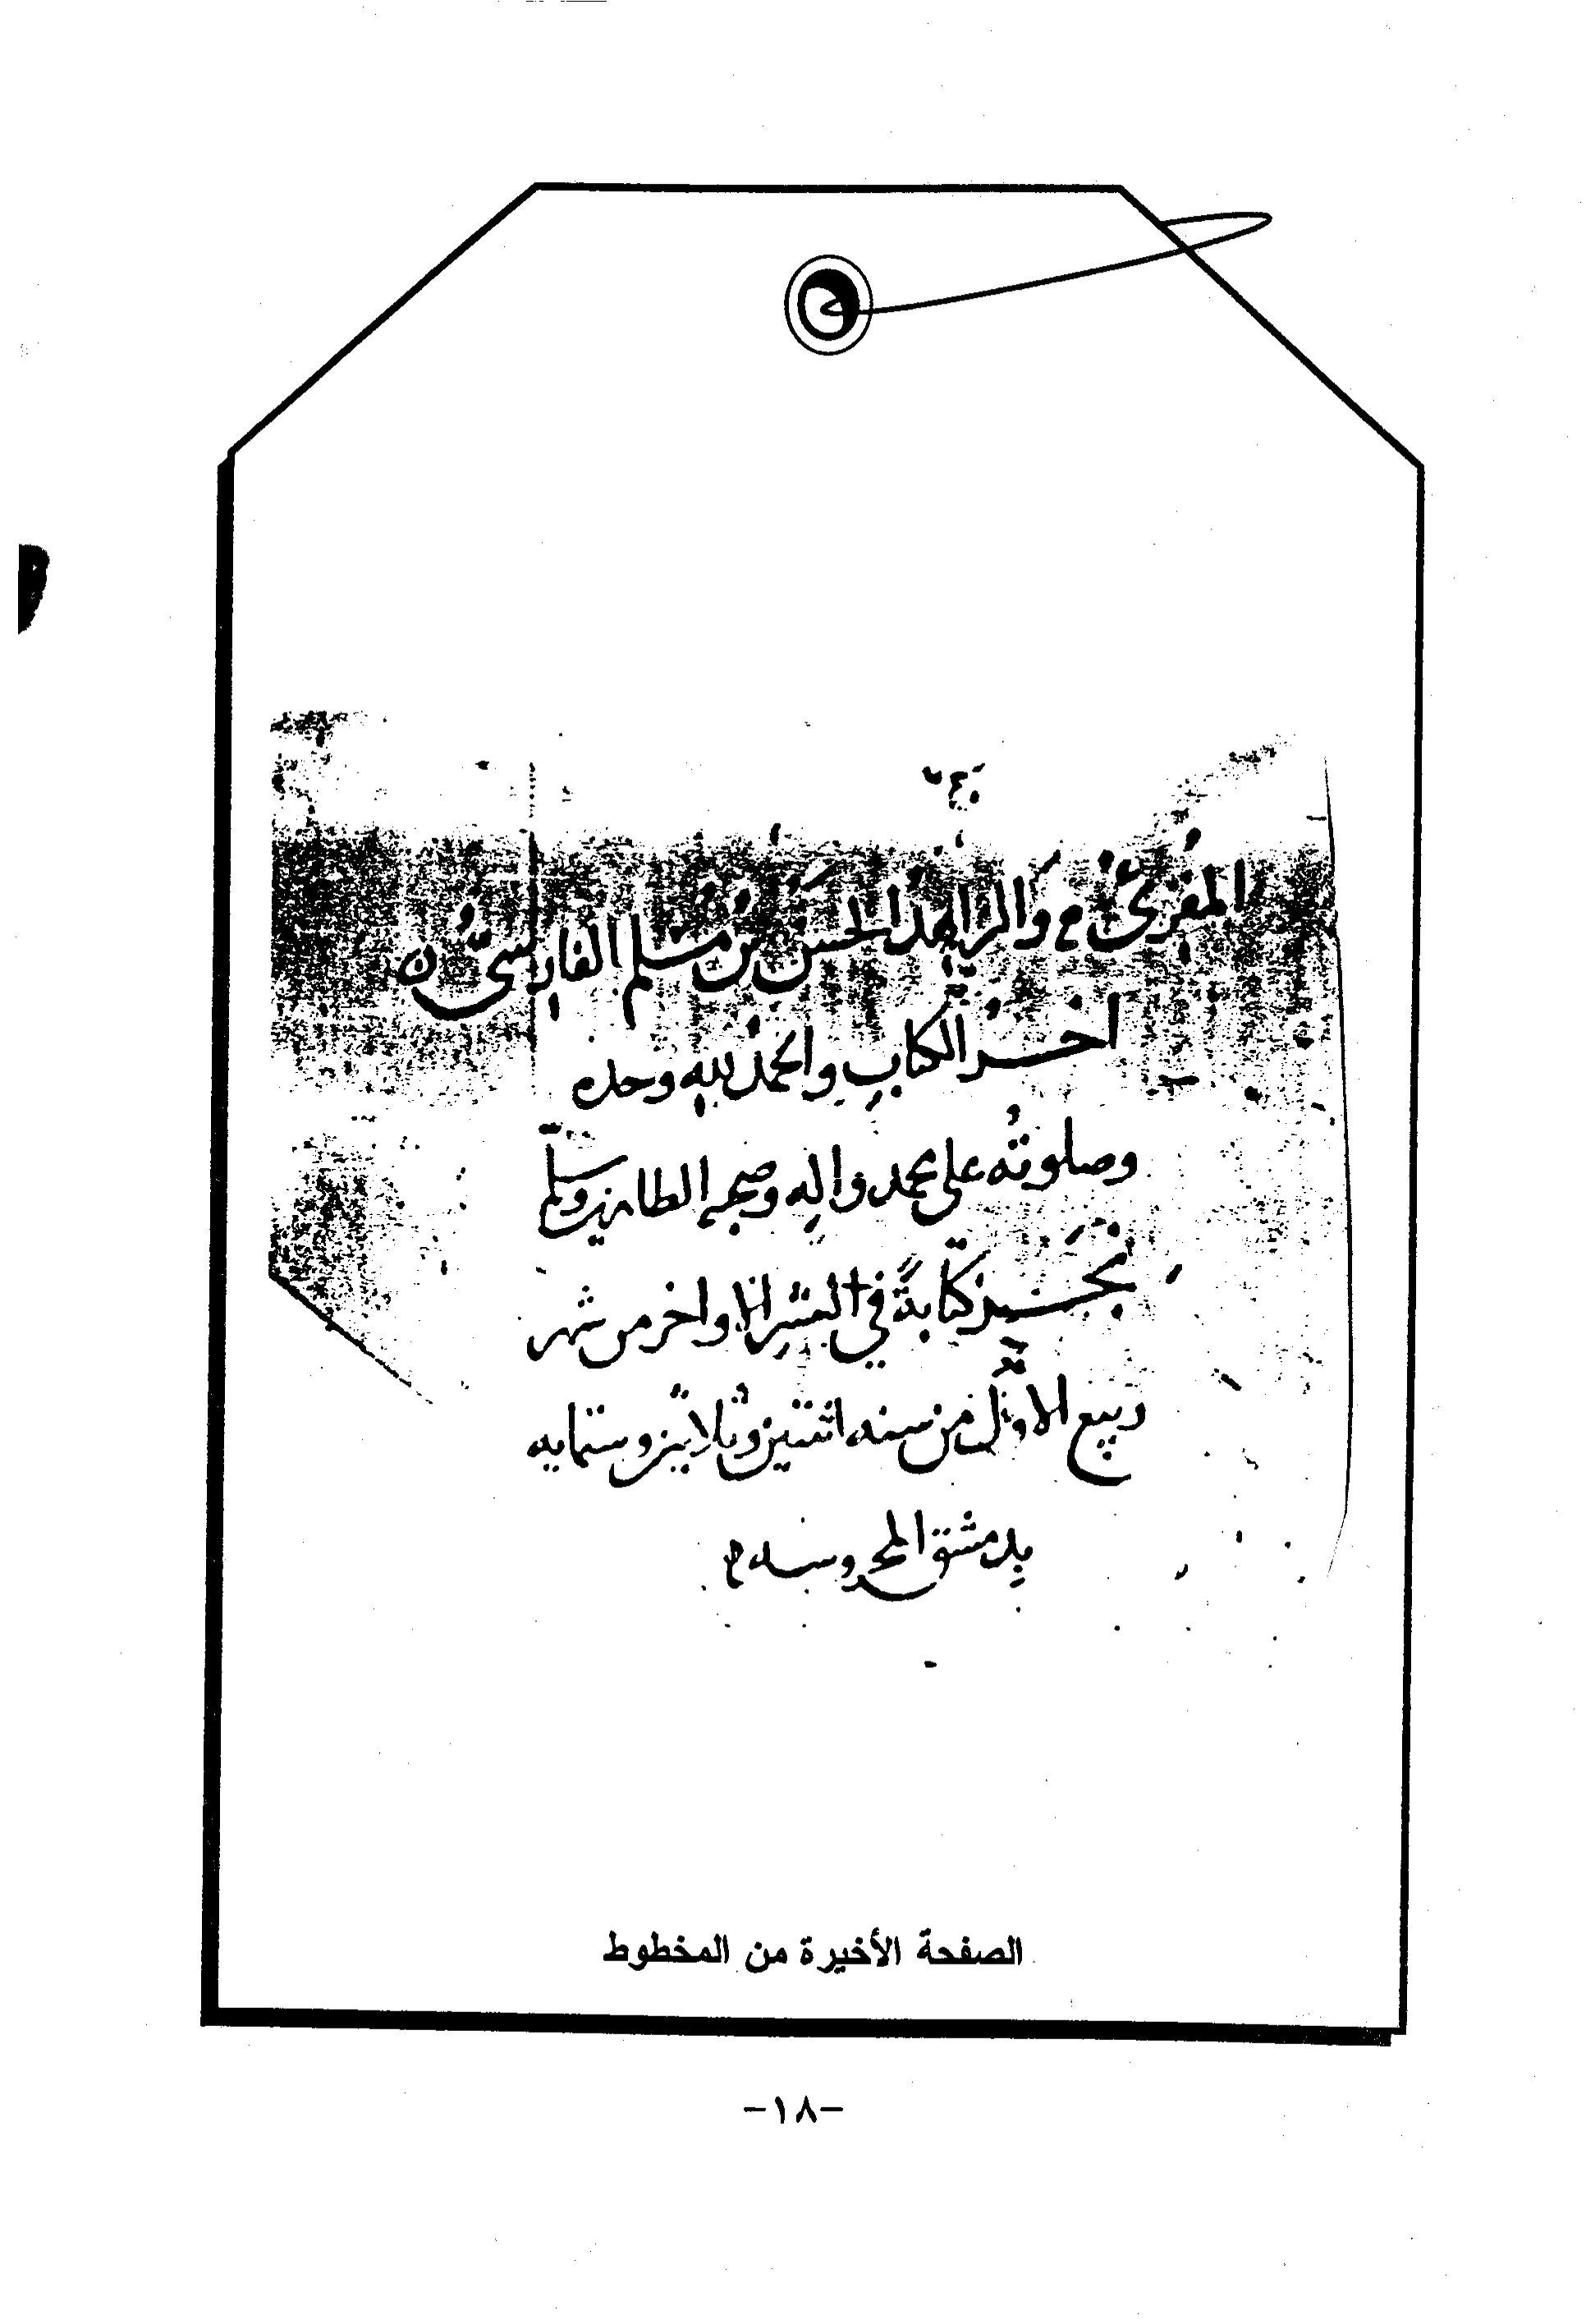 المقرئ والزاهد الحسن بن مسلم الفارسي
اخر الكتاب والحمد لله وحده
وصلوته على محمد واله وصحبه الطاهرين وسلم
نجز كتابةً في العشر الاواخر من شهر
ربيع الاول من سنه اثنتين وثلاثين وستمايه
بدمشق المحروسه
الصفحة الأخيرة من المخطوط
-١٨-